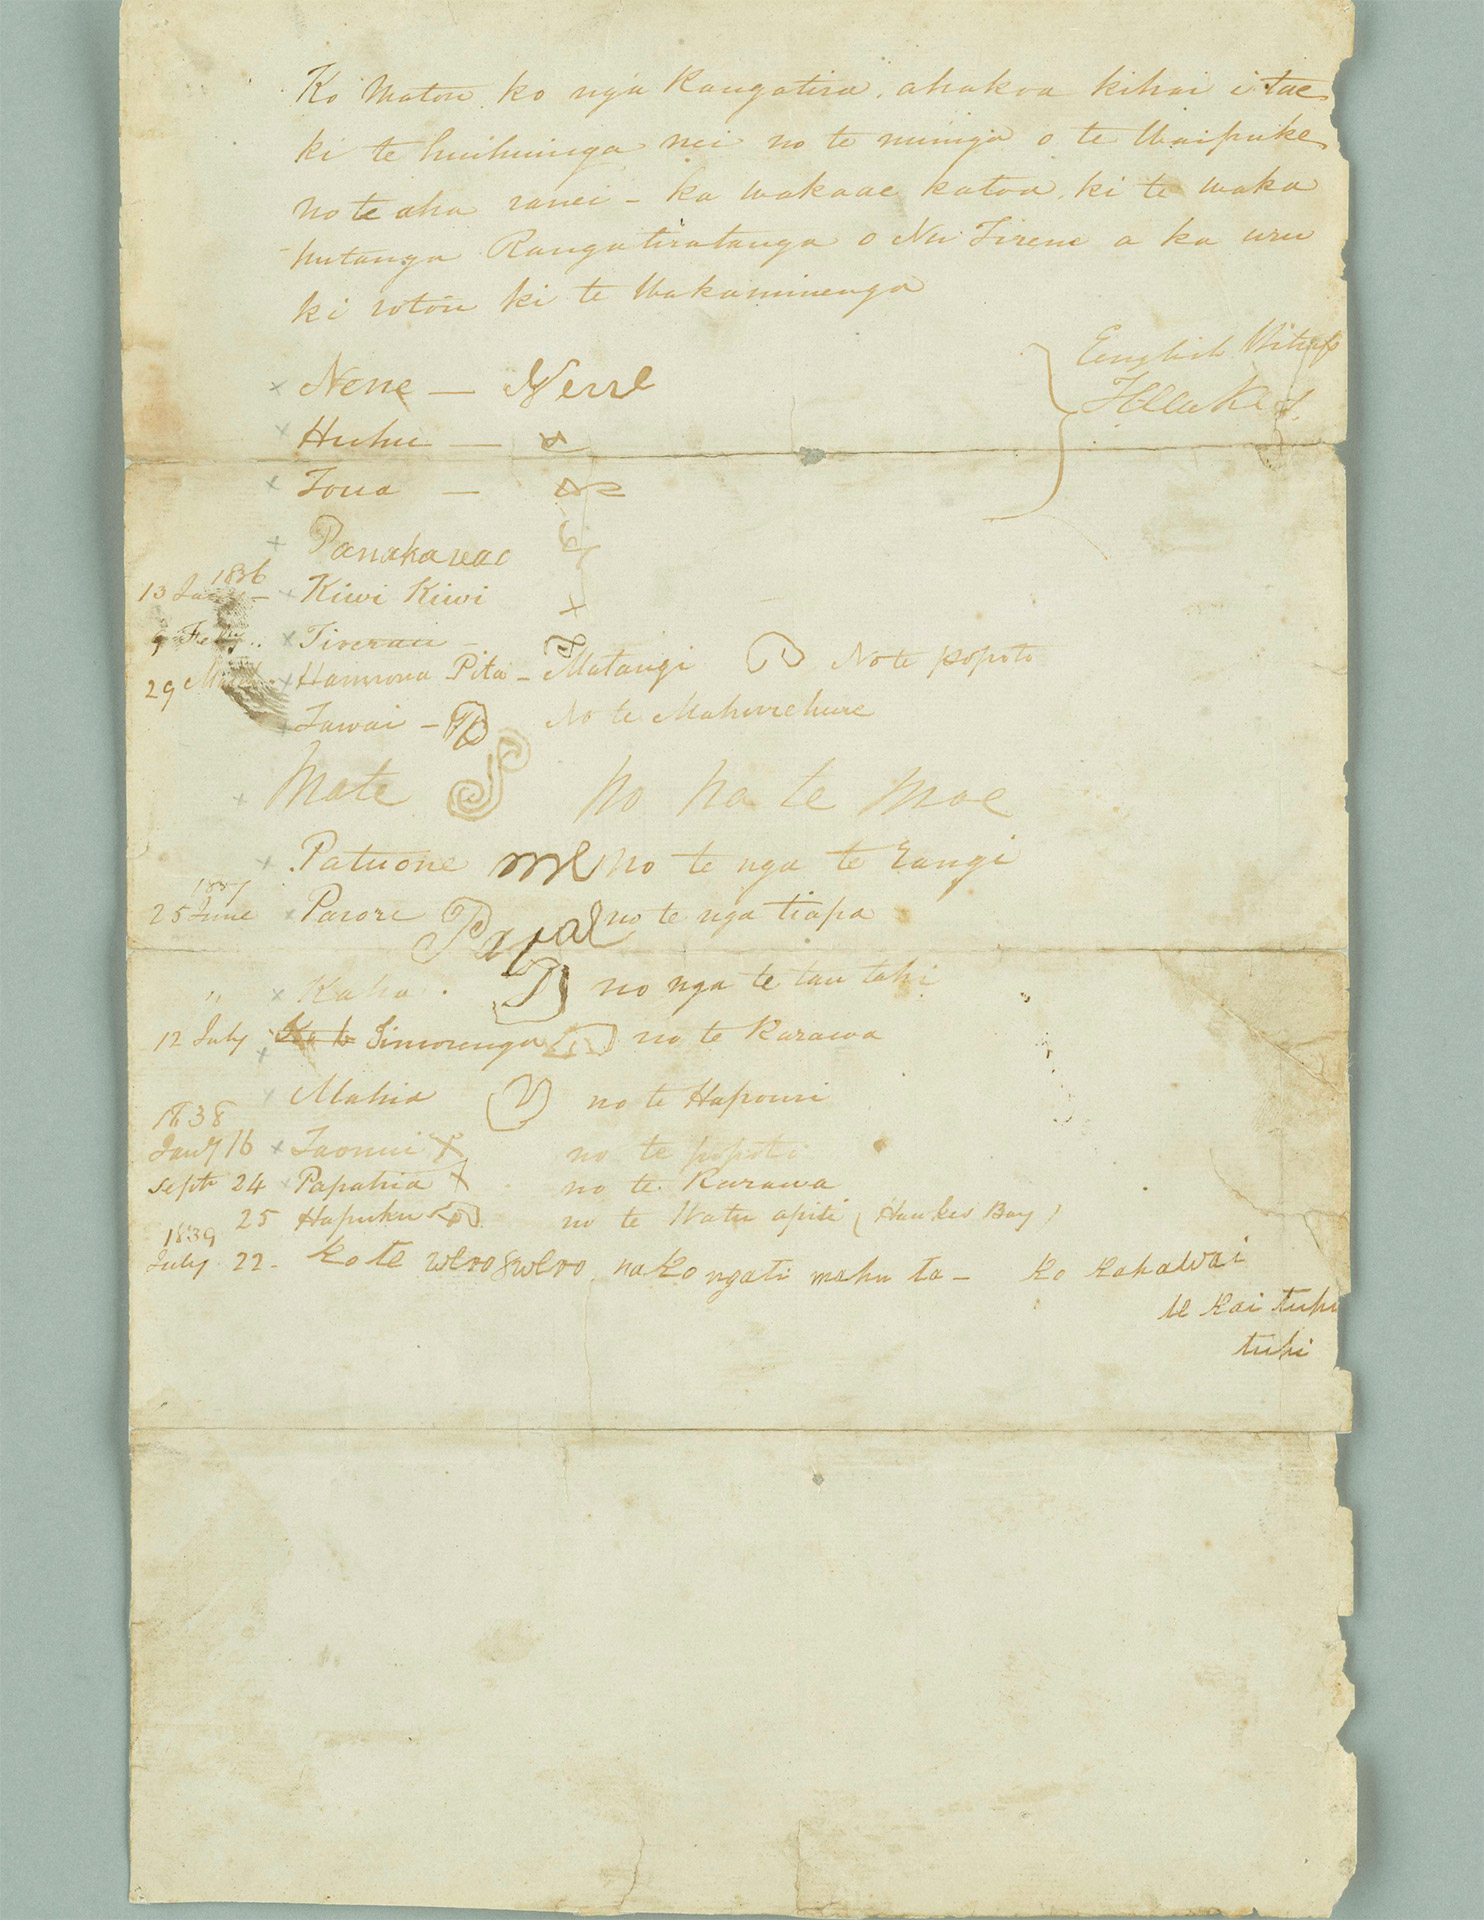 Ko Matou ko nga Rangatira, ahakoa kihai i tae
ki te huihuinga nei no te nuinga o te Waipuke
no te aha ranei - ka wakaae katoa ki te waka
putanga Rangatiratanga o Nu Tirene a ka uru
ki roto ki te Wakaminenga
English Witness
x Nene — Nene
x Huhu —
x Tona —
x Panakareao
1836
13 Jany - x Kiwi Kiwi x
9 Feby .. x Tirerau -
29 March x Hamiora Pita - Matangi No te popoto
x Tawai - No te Mahurehure
x Mate no na te Moe
x Patuone no te nga te rangi
1837
25 June x Parore no te nga tiapa
" x Kaha . no nga te tau tahi
12 July x Timorenga no te Rarawa
x Mahia no te Hapouri
1838
Jany 16 x Taonui x no te popoto
Septr 24 x Papahia x no te Rarawa
25 Hapuku no te Watu apiti (Hawkes Bay)
1839
July 22 - Ko te wero wero na ko ngati mahu ta - ko kahawai
te kai tuhi
tuhi